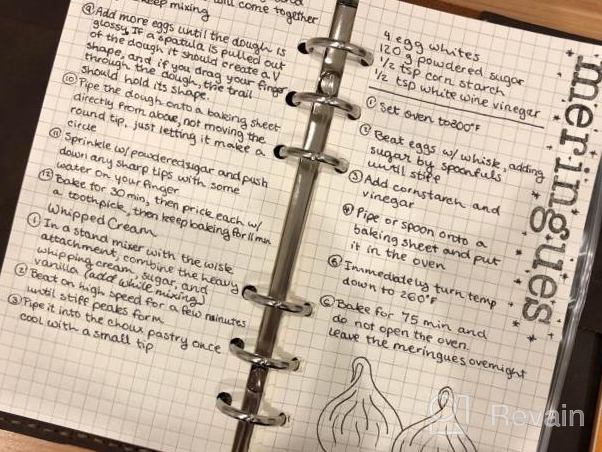 keep mixing will come together
⑨ Add more eggs until the dough is
glossy. If a spatula is pulled out
of the dough it should create a V
shape, and if you drag your finger
through the dough, the trail
should hold its shape.
⑩ Pipe the dough onto a baking sheet
directly from above, not moving the
round tip, just letting it make a
circle
⑪ Sprinkle w/ powdered sugar and push
down any sharp tips with some
water on your finger
⑫ Bake for 30 min, then prick each w/
a toothpick, then keep baking for 11 min
Whipped Cream
① In a stand mixer with the wisk
attachment, combine the heavy
whipping cream, sugar, and
vanilla (add while mixing)
② Beat on high speed for a few minutes
until stiff peaks form
③ Pipe it into the choux pastry once
cool with a small tip
meringues
4 egg whites
120 g powdered sugar
1/2 tsp corn starch
1/2 tsp white wine vinegar
① Set oven to 300°F
② Beat eggs w/ whisk, adding
sugar by spoonfuls
until stiff
③ Add cornstarch and
vinegar
④ Pipe or spoon onto a
baking sheet and put
it in the oven
⑤ Immediately turn temp
down to 260°F
⑥ Bake for 75 min and
do not open the oven.
Leave the meringues overnight
Revain